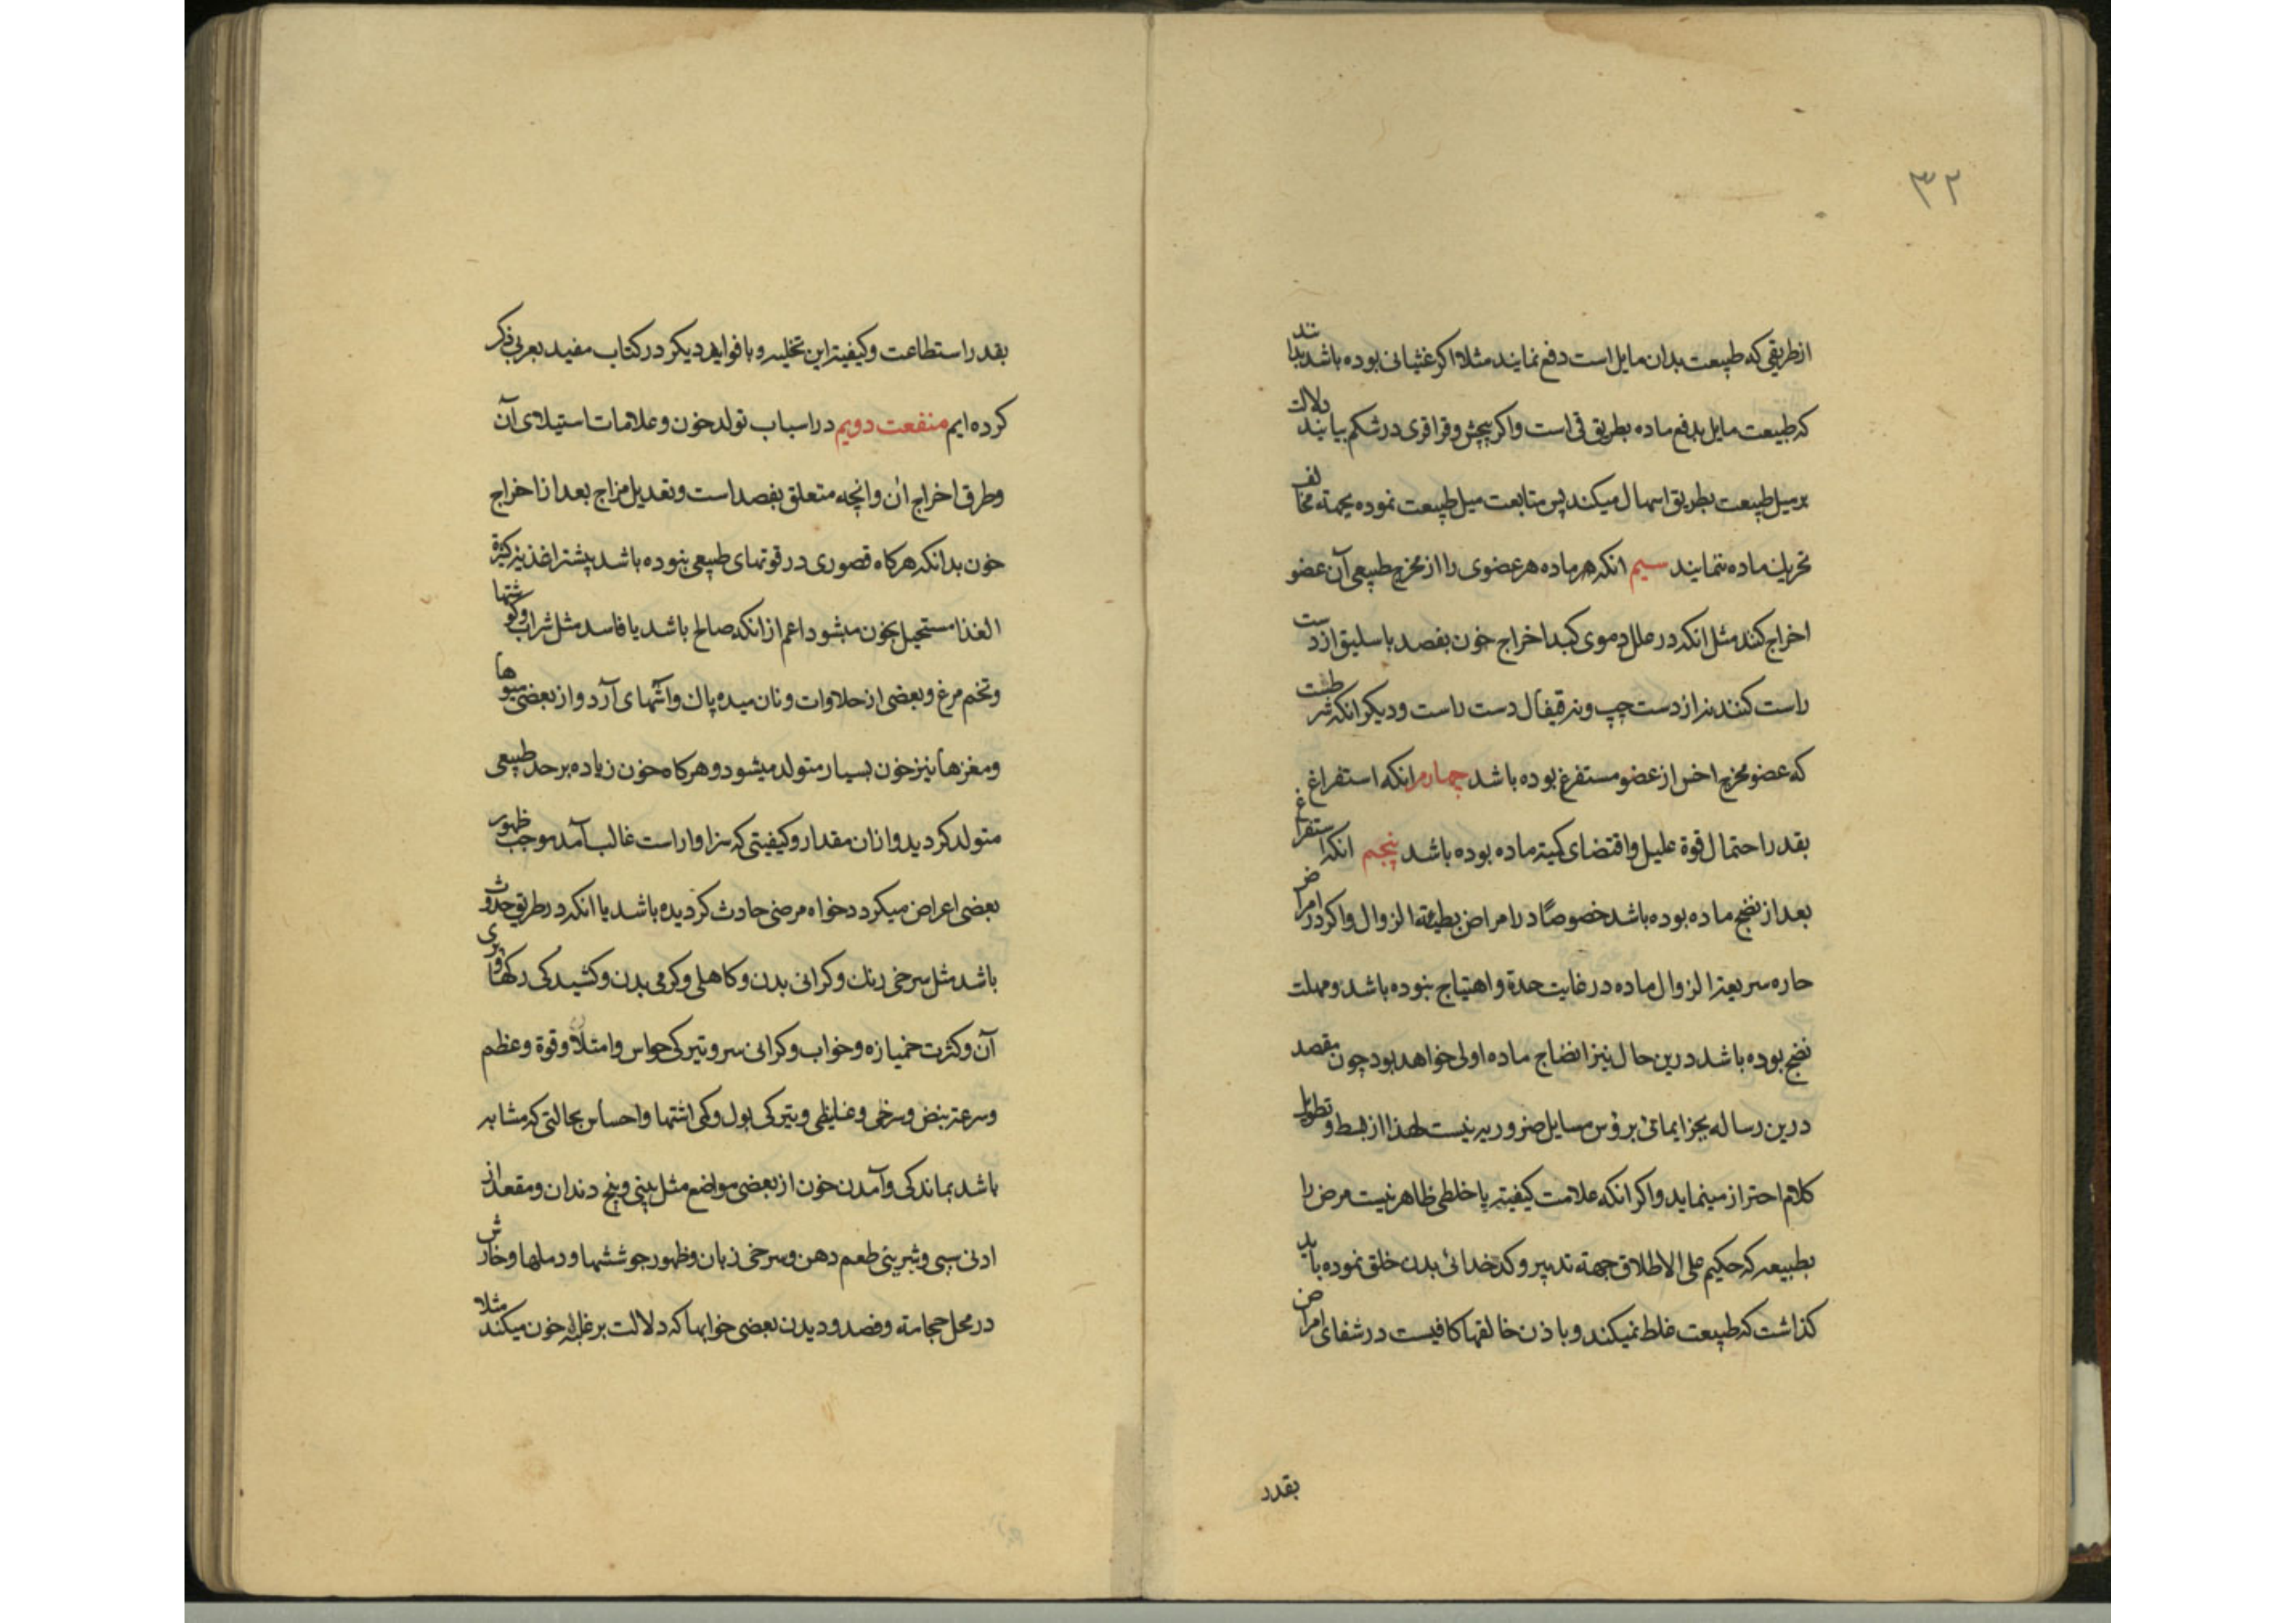 ٣٢
از طریقی که طبیعت بدان مایل است دفع نمایند مثلا اکر غثیانی بوده باشد بدانند
که طبیعت مایل بدفع ماده بطریق قی است و اکر پیچش و قراقری در شکم بیابند دلالت
بر میل طبیعت بطریق اسهال میکند پس متابعت میل طبیعت نموده بجهته مخالف
تحریک ماده ننمایند سیم انکه هر ماده هر عضوی را از مخرج طبیعی آن عضو
اخراج کند مثل انکه در علل دموی کبد اخراج خون بفصد باسلیق از دست
راست کنند نه از دست چپ و نه قیفال دست راست و دیکر انکه شرطست
که عضو مخرج اخس از عضو مستفرغ بوده باشد چهارم انکه استفراغ
بقدر احتمال قوة علیل و اقتضای کمیته ماده بوده باشد پنجم انکه استفراغ
بعد از نضج ماده بوده باشد خصوصًا در امراض بطیئة الزوال و اکر در امراض
حاره سریعة الزوال ماده در غایت حدة و اهتیاج نبوده باشد و مهلت
نضج بوده باشد درین حال نیز انضاج ماده اولی خواهد بود چون مقصد
درین رساله بجز ایمائی برؤس مسایل ضروریه نیست لهذا از بسط و تطویل
کلام احتراز مینماید و اکر انکه علامت کیفیته یا خلطی ظاهر نیست مرض را
بطبیعه که حکیم علی الاطلاق جهة تدبیر و کدخدائی بدن خلق نموده باید
کذاشت که طبیعت غلط نمیکند و باذن خالقها کافیست در شفای امراض
بقدر
بقدر استطاعت و کیفیته این تخلیه و با فواید دیکر در کتاب مفید بعربی ذکر
کرده ایم منفعت دویم در اسباب تولد خون و علامات استیلای آن
و طرق اخراج ان و انچه متعلق بفصد است و تعدیل مزاج بعد از اخراج
خون بدانکه هرکاه قصوری در قوتهای طبیعی نبوده باشد پیشتر اغذیه کثیرة
الغذا مستحیل بخون میشود اعم از انکه صالح باشد یا فاسد مثل شراب و کوشتها
و تخم مرغ و بعضی از حلاوات و نان میده پاک و آشهای آرد و از بعضی میوها
و مغزها نیز خون بسیار متولد میشود و هرکاه خون زیاده بر حد طبیعی
متولد کردید و ازان مقدار و کیفیتی که سزاوار است غالب آمد موجب ظهور
بعضی اعراض میکردد خواه مرضی حادث کردیده باشد یا انکه در طریق حدوث
باشد مثل سرخی رنک و کرانی بدن و کاهلی و کرمی بدن و کشیدکی رکها و پری
آن و کثرت خمیازه و خواب و کرانی سر و تیرکی حواس و امتلا و قوة و عظم
و سرعة نبض و سرخی و غلیظی و تیرکی بول و کمی اشتها و احساس بحالتی که مشابه
باشد بماندکی و آمدن خون از بعضی مواضع مثل بینی و بیخ دندان و مقعد از
ادنی سببی و شیرینی طعم دهن و سرخی زبان و ظهور جوششها و دملها و خارش
در محل حجامته و فصد و دیدن بعضی خوابها که دلالت بر غلبه خون میکند مثلا